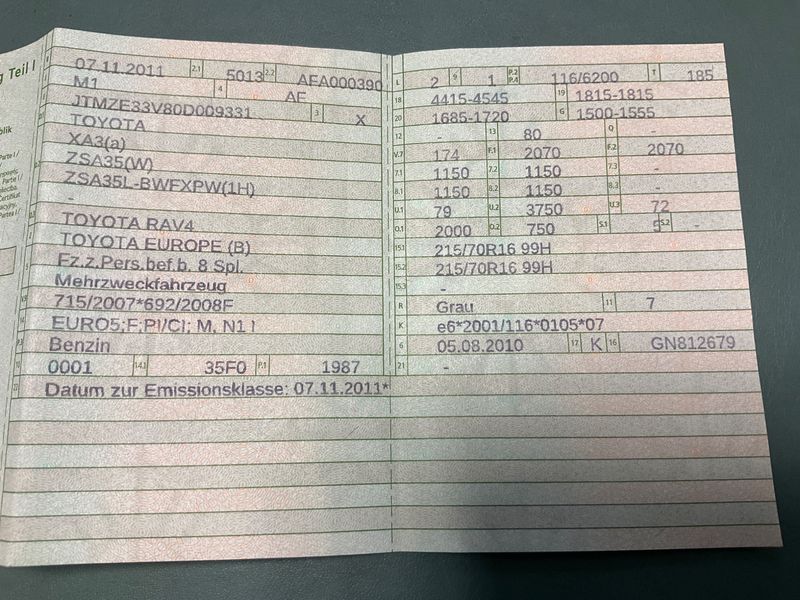 g Teil I
07.11.2011 2.1 5013 2.2 AFA000390
M1 4 AF
JTMZE33V80D009331 3 X
TOYOTA
XA3(a)
ZSA35(W)
ZSA35L-BWFXPW(1H)
-
TOYOTA RAV4
TOYOTA EUROPE (B)
Fz.z.Pers.bef.b. 8 Spl.
Mehrzweckfahrzeug
715/2007*692/2008F
EURO5;F;PI/CI; M, N1 I
Benzin
0001 14.1 35F0 P.1 1987
Datum zur Emissionsklasse: 07.11.2011*
L 2 9 1 P.2 P.4 116/6200 T 185
18 4415-4545 19 1815-1815
20 1685-1720 G 1500-1555
12 - 13 80 Q -
V.7 174 F.1 2070 F.2 2070
7.1 1150 7.2 1150 7.3 -
8.1 1150 8.2 1150 8.3 -
U.1 79 U.2 3750 U.3 72
O.1 2000 O.2 750 S.1 5 S.2 -
15.1 215/70R16 99H
15.2 215/70R16 99H
15.3 -
R Grau 11 7
K e6*2001/116*0105*07
6 05.08.2010 17 K 16 GN812679
21 -